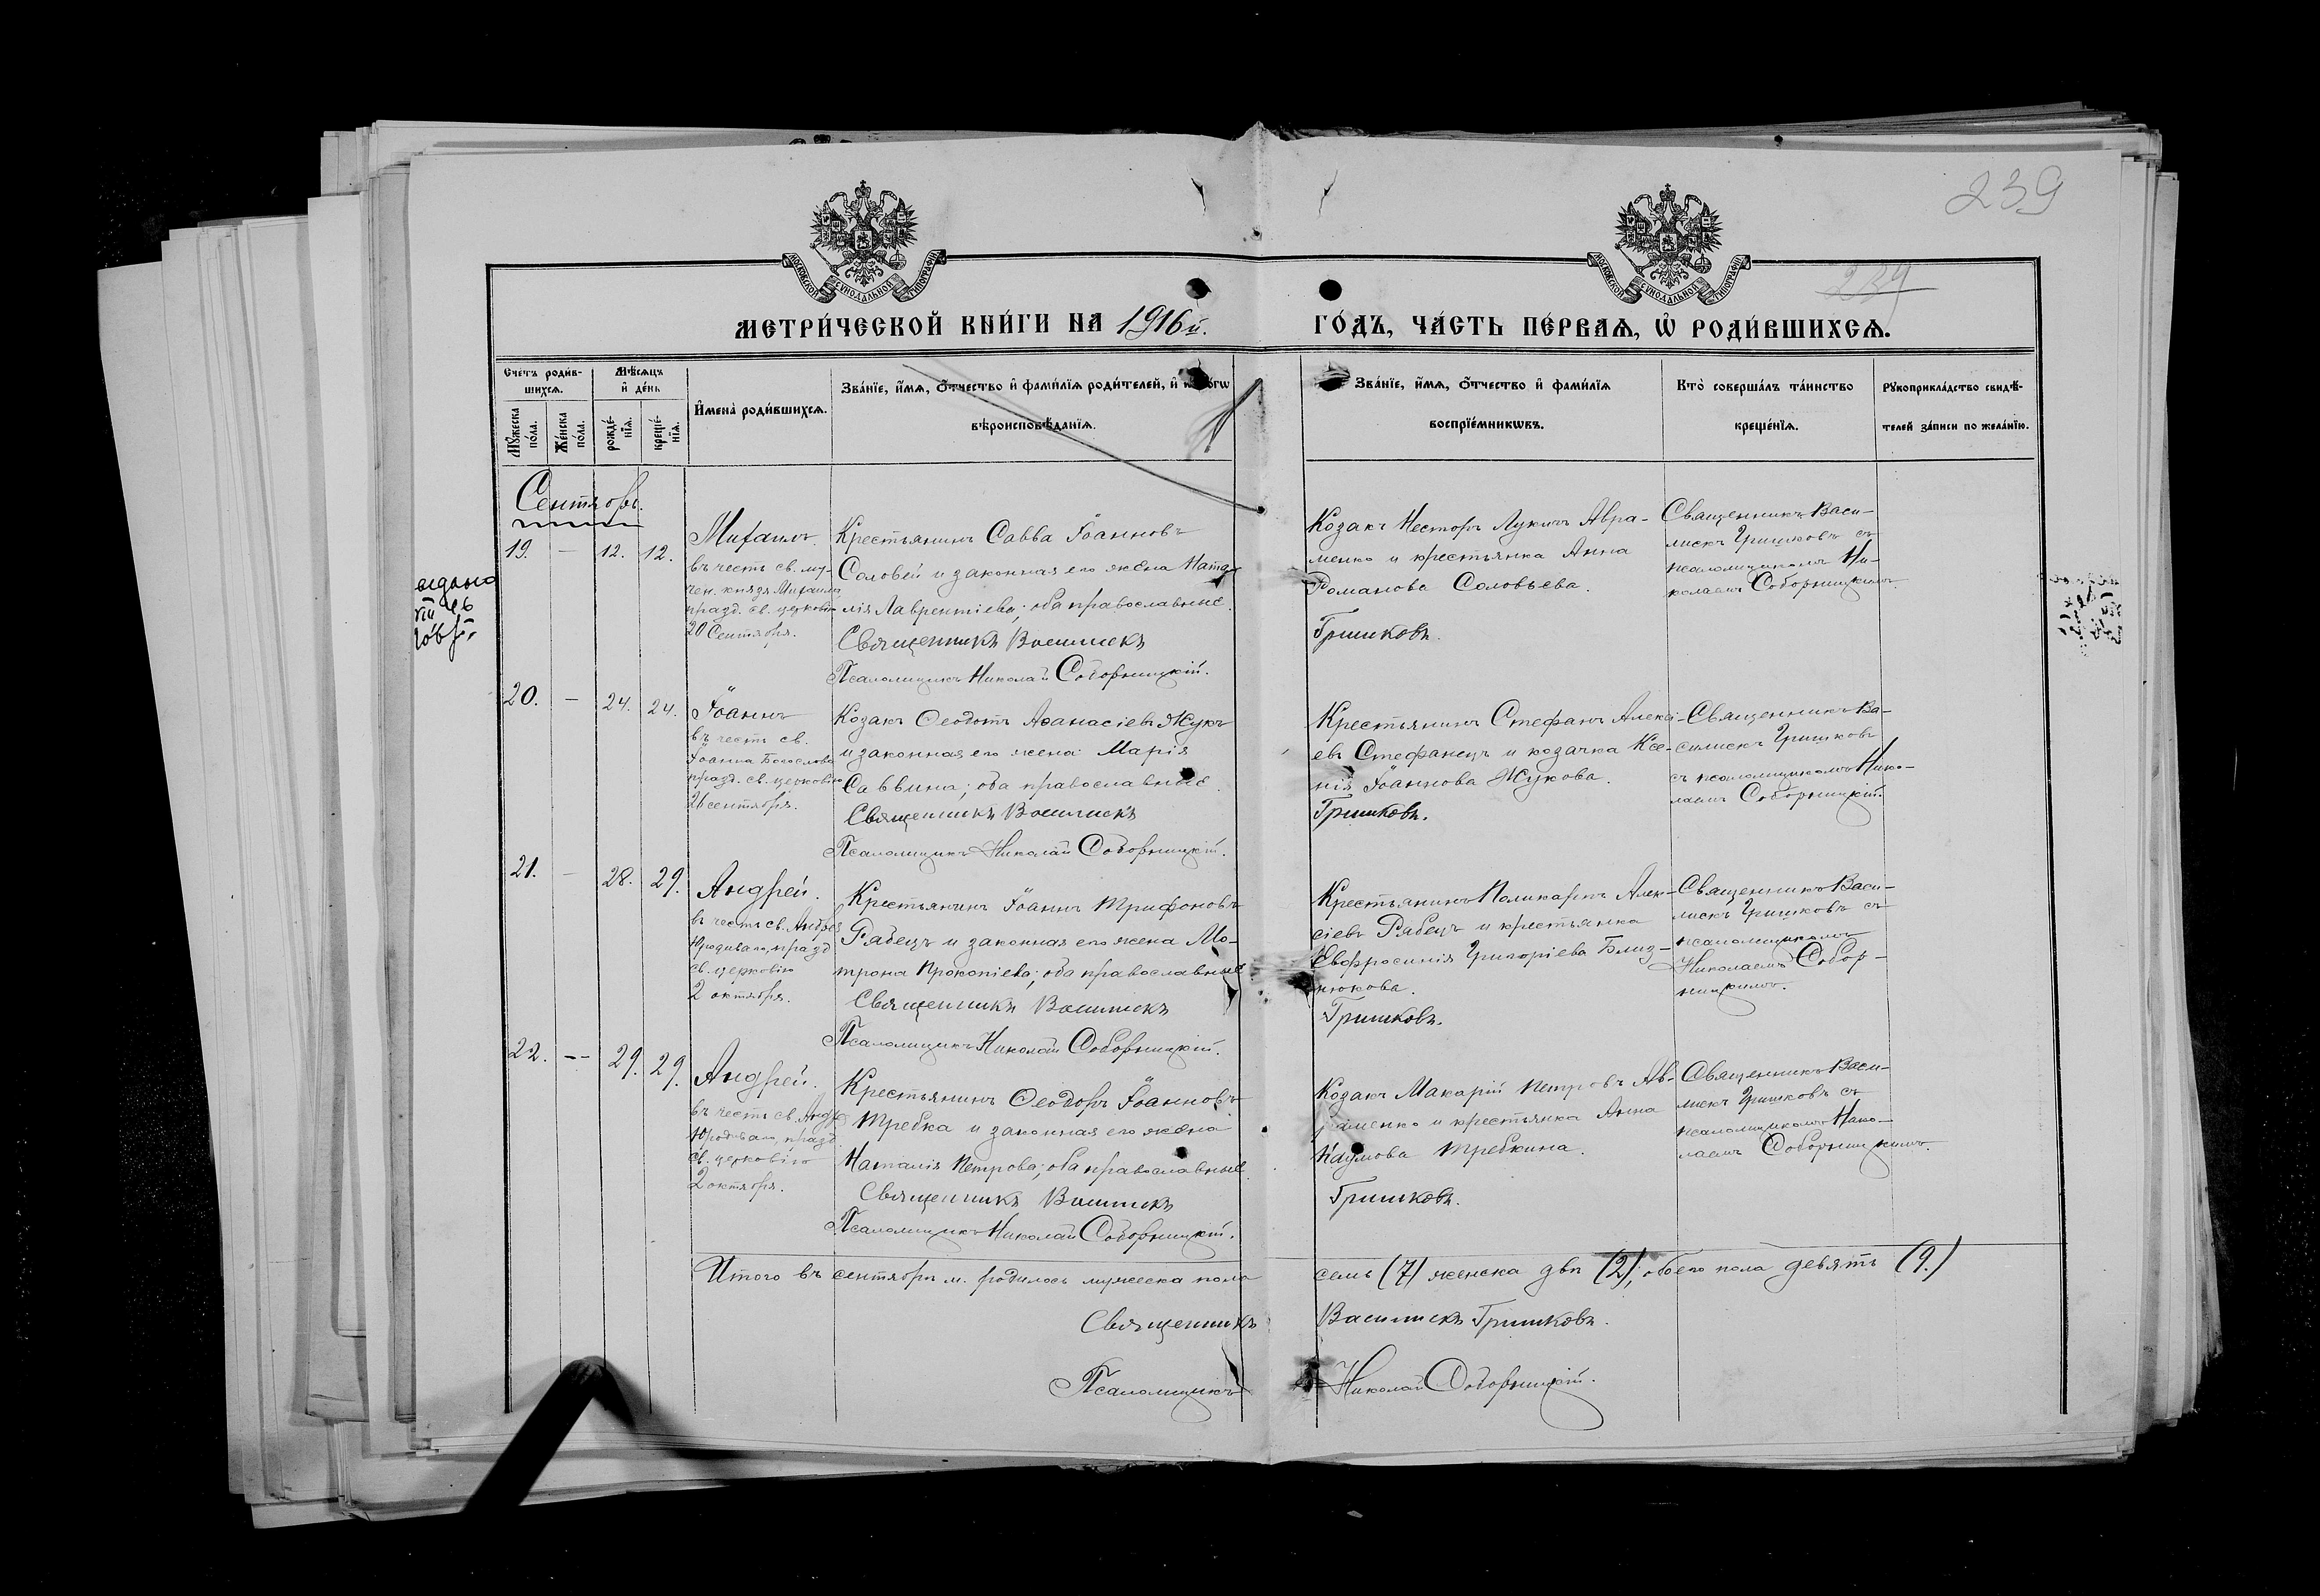 239
234
МОСКОВСКОЙ СѴНОДАЛЬНОЙ ТИПОГРАФІИ
МОСКОВСКОЙ СѴНОДАЛЬНОЙ ТИПОГРАФІИ
МЕТРИ́ЧЕСКОЙ КНИ́ГИ НА 1916й.
ГО́ДЪ, ЧА́СТЬ ПЕ́РВАѦ, Ѡ҆ РОДИ́ВШИХСѦ.
Сче́тъ роди́в-
шихсѧ.
Мꙋ́жеска по́ла.
Же́нска по́ла.
Мѣ́сѧцъ
и҆ де́нь
рожде́-
нїѧ.
креще́-
нїѧ.
И҆мена̀ роди́вшихсѧ.
Зва́нїе, и҆́мѧ, ѻ҆́тчество и҆ фами́лїѧ роди́телей, и҆
вѣроисповѣ́данїѧ.
Зва́нїе, и҆́мѧ, ѻ҆́тчество и҆ фами́лїѧ
воспрїе́мникѡвъ.
Кто̀ соверша́лъ та́инство
креще́нїѧ.
Рꙋкоприкла́дство свидѣ́-
телей за́писи по жела́нїю.
Сентябрь.
19. — 12. 12.
Михаилъ.
въ честь св. му-
чен. князя Михаила
празд. св. церковію
20 Сентября.
Крестьянинъ Савва Іоанновъ
Соловей и законная его жена Ната-
лія Лаврентіева; оба православные.
Священникъ Василискъ
Псаломщикъ Николай Соборницкій.
Козакъ Несторъ Лукичъ Авра-
менко и крестьянка Анна
Романова Соловьева.
Гришковъ.
Священникъ Васи-
лискъ Гришковъ съ
псаломщикомъ Ни-
колаемъ Соборницкимъ.
выдано
20. — 24. 24.
Іоаннъ
въ честь св.
Іоанна Богослова
празд. св. церковію
26 сентября.
Козакъ Ѳеодотъ Аѳанасіевъ Жукъ
и законная его жена Марія
Саввина; оба православные.
Священникъ Василискъ
Псаломщикъ Николай Соборницкій.
Крестьянинъ Стефанъ Алексі-
евъ Стефанецъ и козачка Ксе-
нія Іоаннова Жукова.
Гришковъ.
Священникъ Ва-
силискъ Гришковъ
съ псаломщикомъ Нико-
лаемъ Соборницкій.
21. — 28. 29.
Андрей.
въ честь св. Андрея
Юродиваго, празд
св. церковію
2 октября.
Крестьянинъ Іоаннъ Трифоновъ
Рябецъ и законная его жена Мо-
трона Прокопіева; оба православные
Священникъ Василискъ
Псаломщикъ Николай Соборницкій.
Крестьянинъ Поликарпъ Алек-
сіевъ Рябецъ и крестьянка
Евфросинія Григоріева Близ-
нюкова.
Гришковъ.
Священникъ Васи-
лискъ Гришковъ съ
псаломщикомъ
Николаемъ Собор-
ницкимъ.
22. -- 29. 29.
Андрей.
въ честь св. Андр.
Юродиваго, празд.
св. церковію
2 октября.
Крестьянинъ Ѳеодоръ Іоанновъ
Требка и законная его жена
Наталія Петрова; оба православные.
Священникъ Василискъ
Псаломщикъ Николай Соборницкій.
Козакъ Макарій Петровъ Ав-
раменко и крестьянка Анна
Наумова Требкина.
Гришковъ.
Священникъ Васи-
лискъ Гришковъ съ
псаломщикомъ Нико-
лаемъ Соборницкимъ.
Итого въ сентябрѣ м. родилось мужеска пола семь (7) женска двѣ (2); обоего пола девять (9.)
Священникъ Василискъ Гришковъ.
Псаломщикъ Николай Соборницкій.